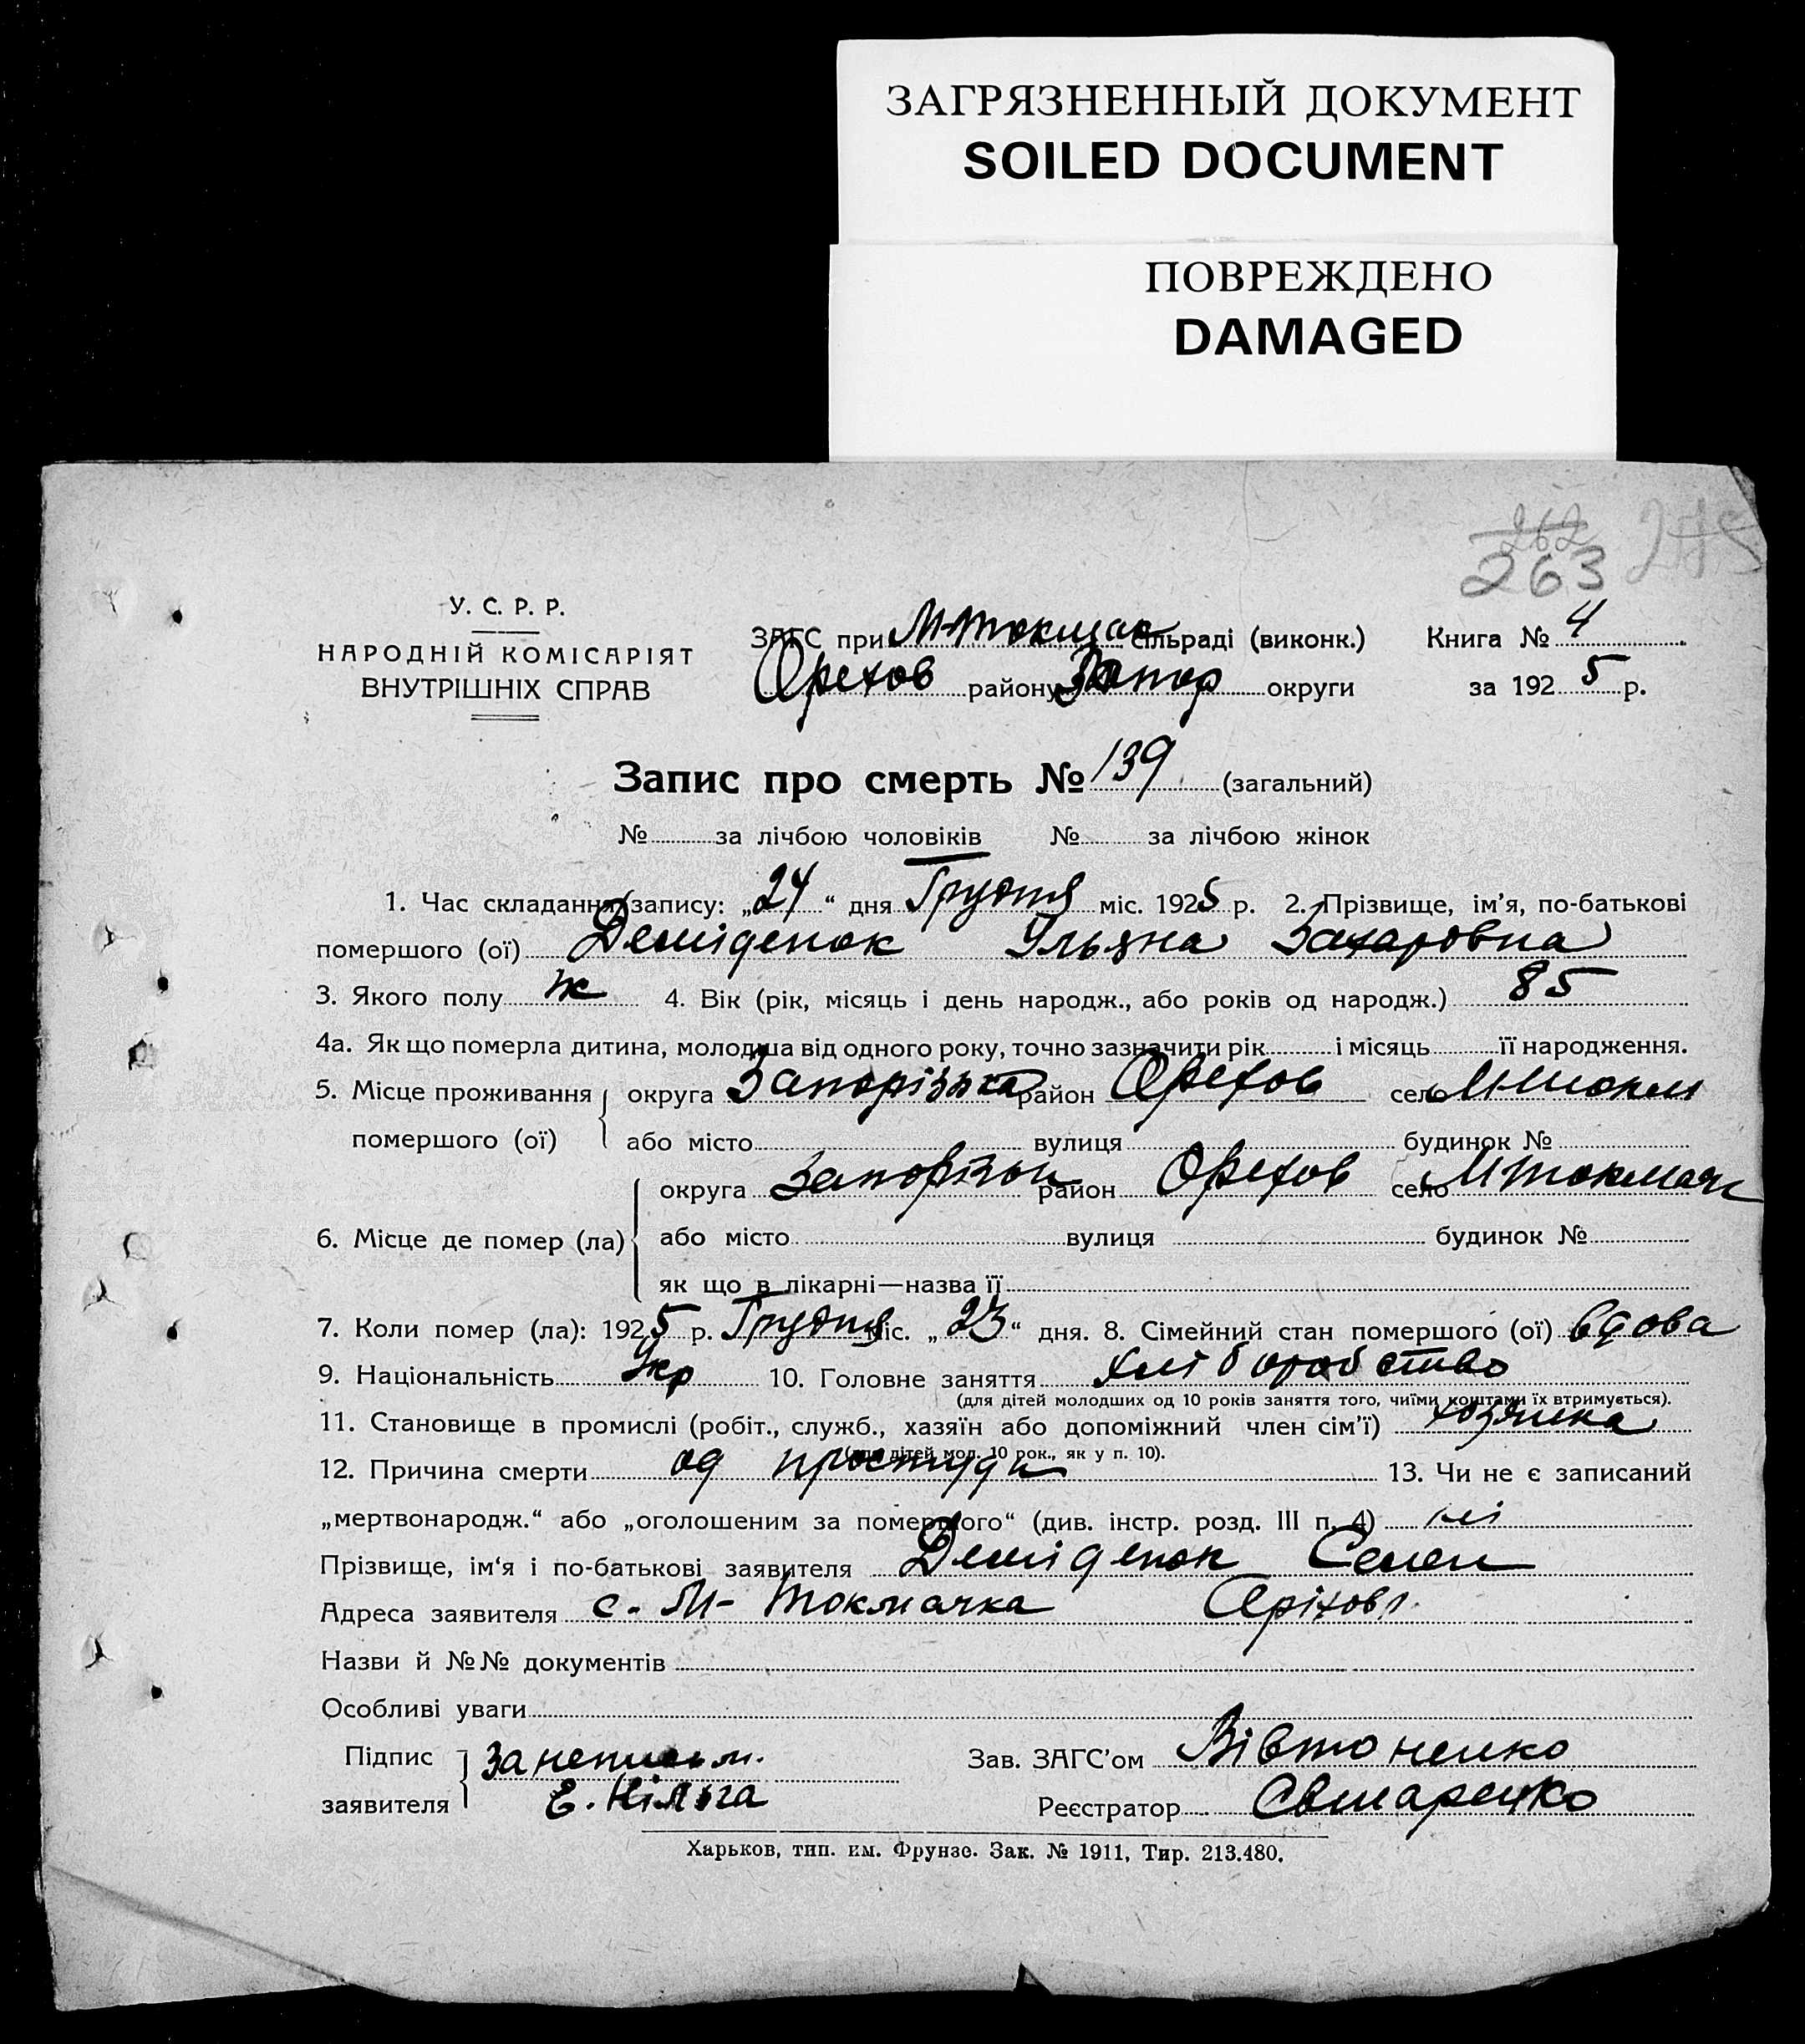 ЗАГРЯЗНЕННЫЙ ДОКУМЕНТ
SOILED DOCUMENT
ПОВРЕЖДЕНО
DAMAGED
262
263 275
У. С. Р. Р.
НАРОДНІЙ КОМІСАРІЯТ
ВНУТРІШНІХ СПРАВ
ЗАГС при М-Токмач сільраді (виконк.) Книга № 4
Орехов району Запор округи за 1925 р.
Запис про смерть № 139 (загальний)
№ за лічбою чоловіків № за лічбою жінок
1. Час складання запису: „24“ дня Грудня міс. 1925 р. 2. Прізвище, ім'я, по-батькові
помершого (ої) Деміденок Ульяна Захаровна
3. Якого полу ж 4. Вік (рік, місяць і день народж., або років од народж.) 85
4а. Як що померла дитина, молодша від одного року, точно зазначити рік і місяць її народження.
5. Місце проживання помершого (ої) округа Запорізька район Орехов село М-Токм
або місто вулиця будинок №
6. Місце де помер (ла) округа район Орехов село МТокмачк
або місто вулиця будинок №
як що в лікарні—назва її
7. Коли помер (ла): 1925 р. Грудня міс. „23“ дня. 8. Сімейний стан помершого (ої) вдова
9. Національність Укр 10. Головне заняття хліборобство
(для дітей молодших од 10 років заняття того, чиїми коштами їх втримується).
11. Становище в промислі (робіт., служб., хазяїн або допоміжний член сім'ї) хозяика
(для дітей мол. 10 рок., як у п. 10).
12. Причина смерти од простуди 13. Чи не є записаний
„мертвонародж.“ або „оголошеним за померлого“ (див. інстр. розд. III п. 4) ні
Прізвище, ім'я і по-батькові заявителя Деміденок Семен
Адреса заявителя с. М-Токмачка Оріхов
Назви й №№ документів
Особливі уваги
Підпис заявителя За неписьм. Зав. ЗАГС'ом Вівтоненко
Е. Кільга Реєстратор
Харьков, тип. им. Фрунзе. Зак. № 1911, Тир. 213.480.